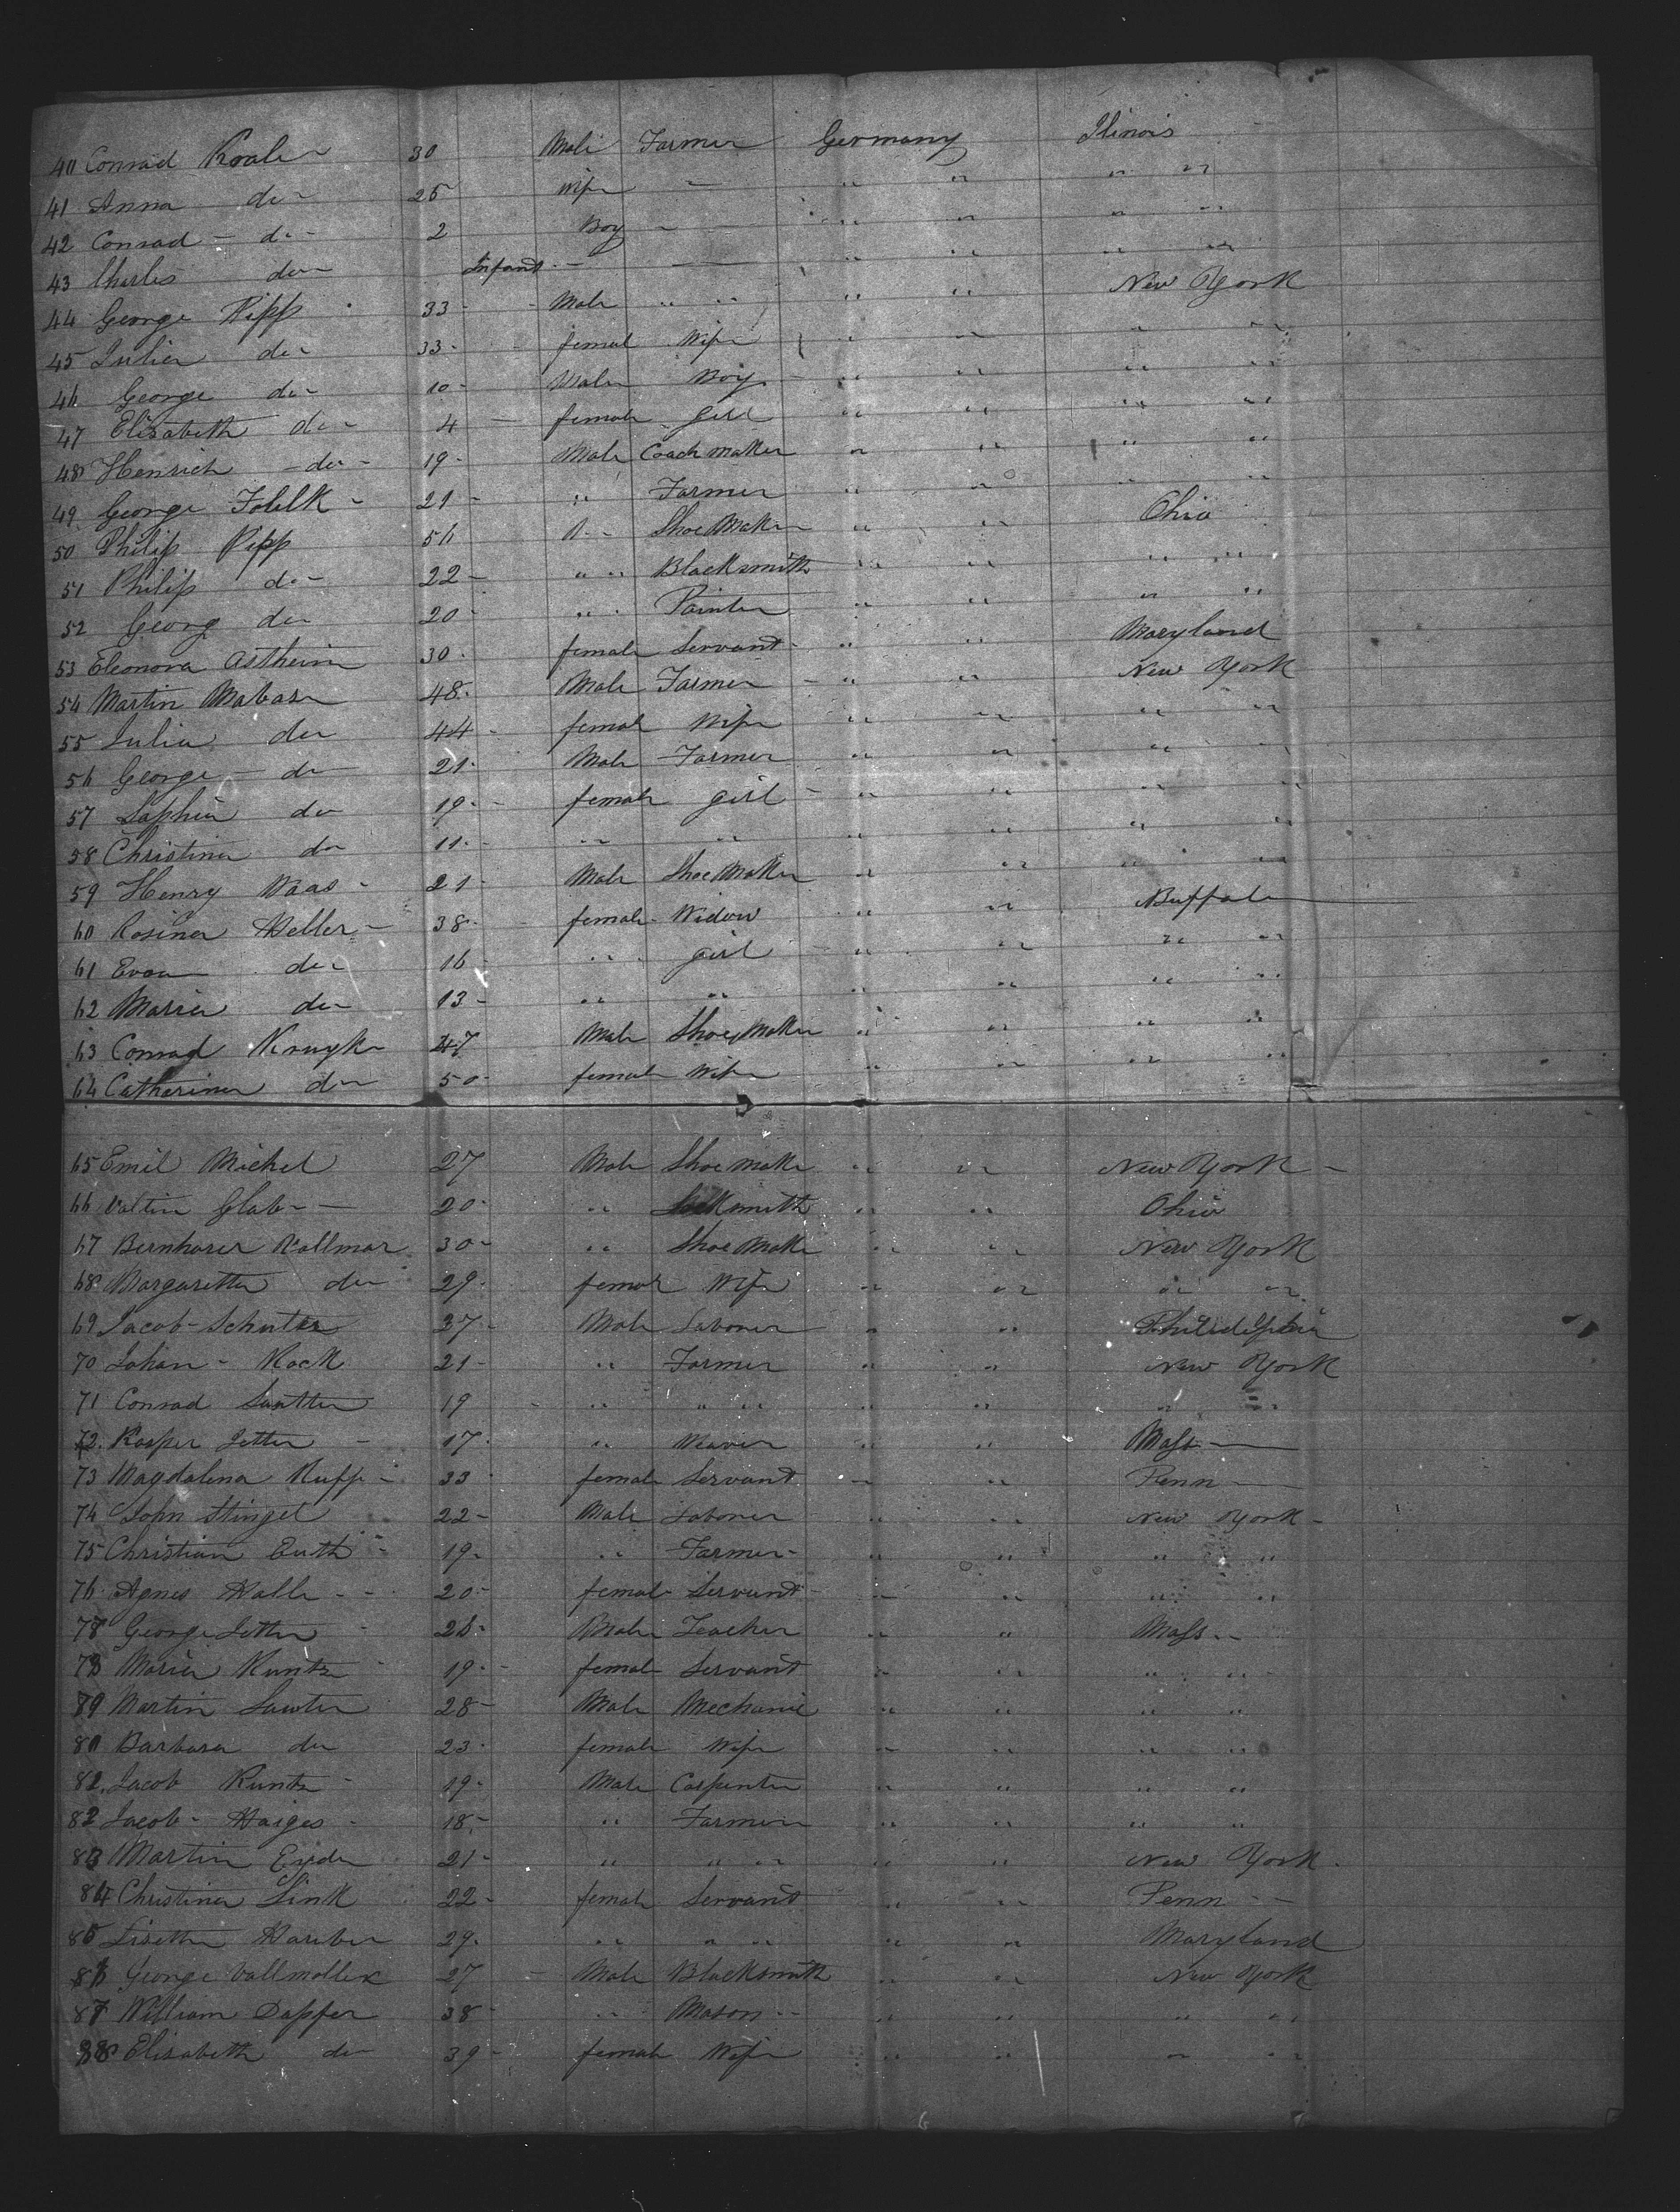 40 Conrad 30 Male Farmer Germany Ilinois
41 Anna do 25 wife - " " " "
42 Conrad - do - 2 Boy - " " " "
43 Charles do Infant - " " " "
44 George Ripp 33 - Male " " " " New York
45 Julia do 33 - femal Wife " " " "
46 George do 10 - Male Boy " " " "
47 Elisabeth do 4 - female girl " " " "
48 Henrich - do - 19 - Male Coach maker " " " "
49 George 21 - " Farmer " " " "
50 Philip Ripp 56 " Shoe Maker " " Ohio
51 Philip do - 22 - " " Blacksmith " " " "
52 Georg do 20 - " Painter " " " "
53 Eleonora Astheim 30 - female Servant - " " Maryland
54 Martin 48 - Male Farmer - " " New York
55 Julia do 44 - femal Wife " " " "
56 George - do 21 - Male Farmer " " " "
57 Sophia do 19 - female girl - " " " "
58 Christina do 11 - " " " " " "
59 Henry Waas - 21 - Male Shoe Maker " " " "
60 Rosina Heller - 38 - female - Widow " " Buffalo
61 Eva do 16 - " girl " " " "
62 Maria do 13 - " " " " " "
63 Conrad 47 Male Shoe Maker " " " "
64 Catharina do 50 - female Wife " " " "
65 Emil Michel 27 Male Shoe make " " New York -
66 Valtin Glab - 20 - " Locksmith " " Ohio
67 Vollmar 30 - " Shoe Make " " New York
68 Margaretta do 29 - femal Wife " " " "
69 Jacob - Schutz 37 - Male Laborer " " Philadelphia
70 Johan - Rock 21 - " Farmer " " New York
71 Conrad 19 - " " " " " " "
72 Kasper Jetter - 17 - " " " Mass -
73 Magdalena Rupp - 33 female Servant " " Penn -
74 John Stingel 22 - Male Laborer " " New York -
75 Christian 19 - " Farmer - " " " "
76 Agnes 20 - female Servant - " " " "
78 George Jetter - Male Teacher " " Mass -
78 Maria Kuntz - 19 - female Servant " " " "
79 Martin Sawter 28 - Male Mechanic " " " "
80 Barbara do 23 - female Wife " " " "
82 Jacob Kuntz - 19 - Male Carpenter " " " "
82 Jacob - Haiges - 18 - " Farmer " " " "
83 Martin 21 - " " " " " New York -
84 Christina Link 22 - female Servant " " Penn - -
85 29 - " " " " " Maryland
86 George 27 - Male Blacksmith " " New York
87 William Dapfer 38 - " Mason - " " " "
88 Elisabeth do 39 - female Wife " " " "